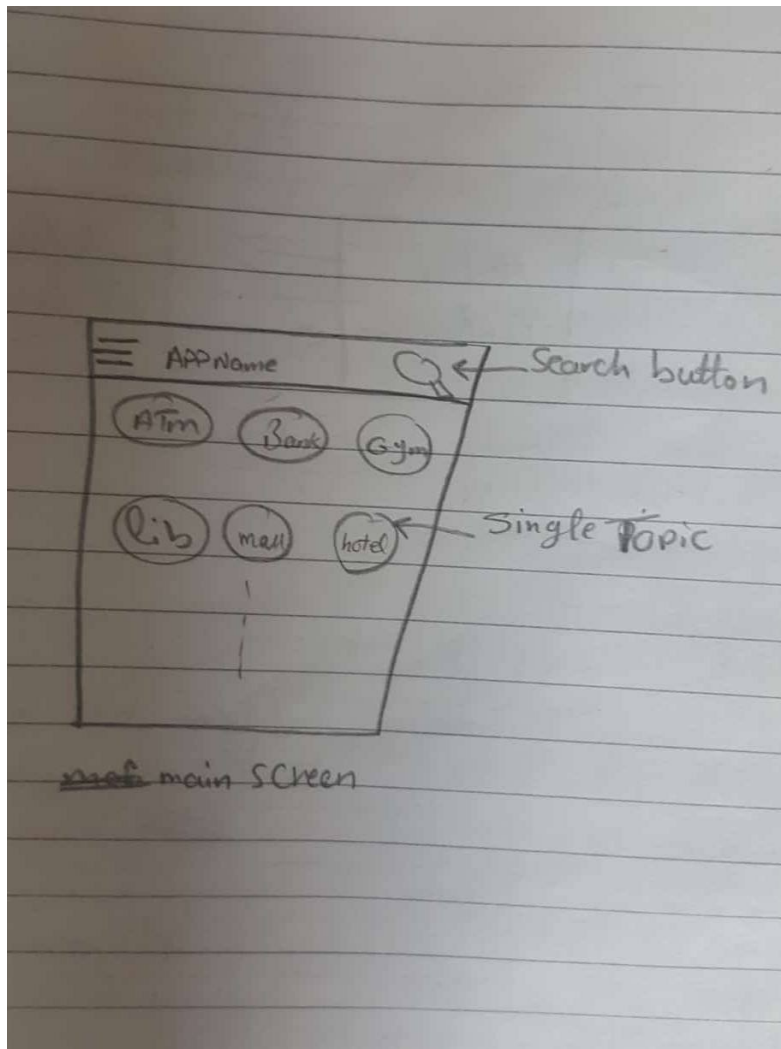 APPName
Search button
ATm Bank Gym
lib mall hotel
Single Topic
main screen